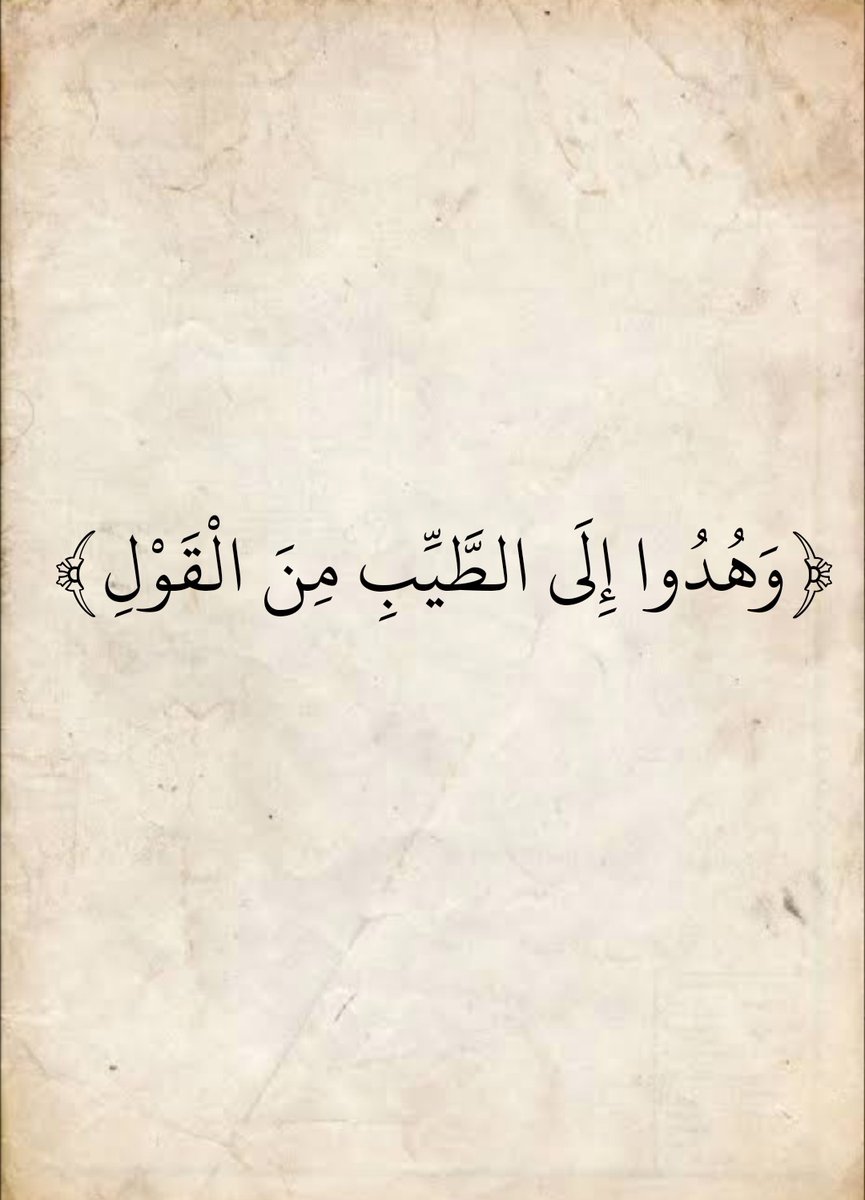 ﴿وَهُدُوا إِلَى الطَّيِّبِ مِنَ الْقَوْلِ﴾